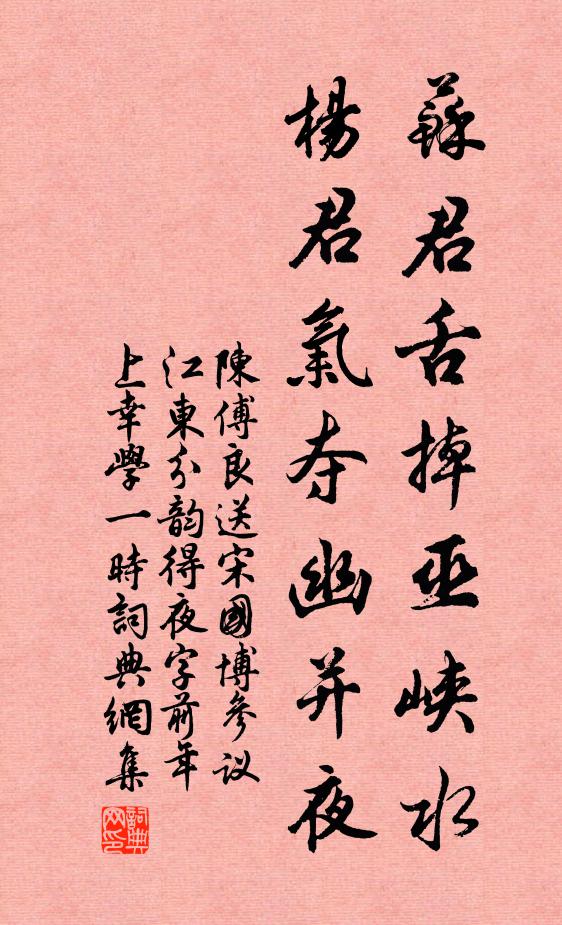 蘇君舌掉巫峽水
楊君氣夺幽并夜
陳傅良送宋國博參议
江東分韵得夜字前年
上幸學一時詞典網集
詞典网印